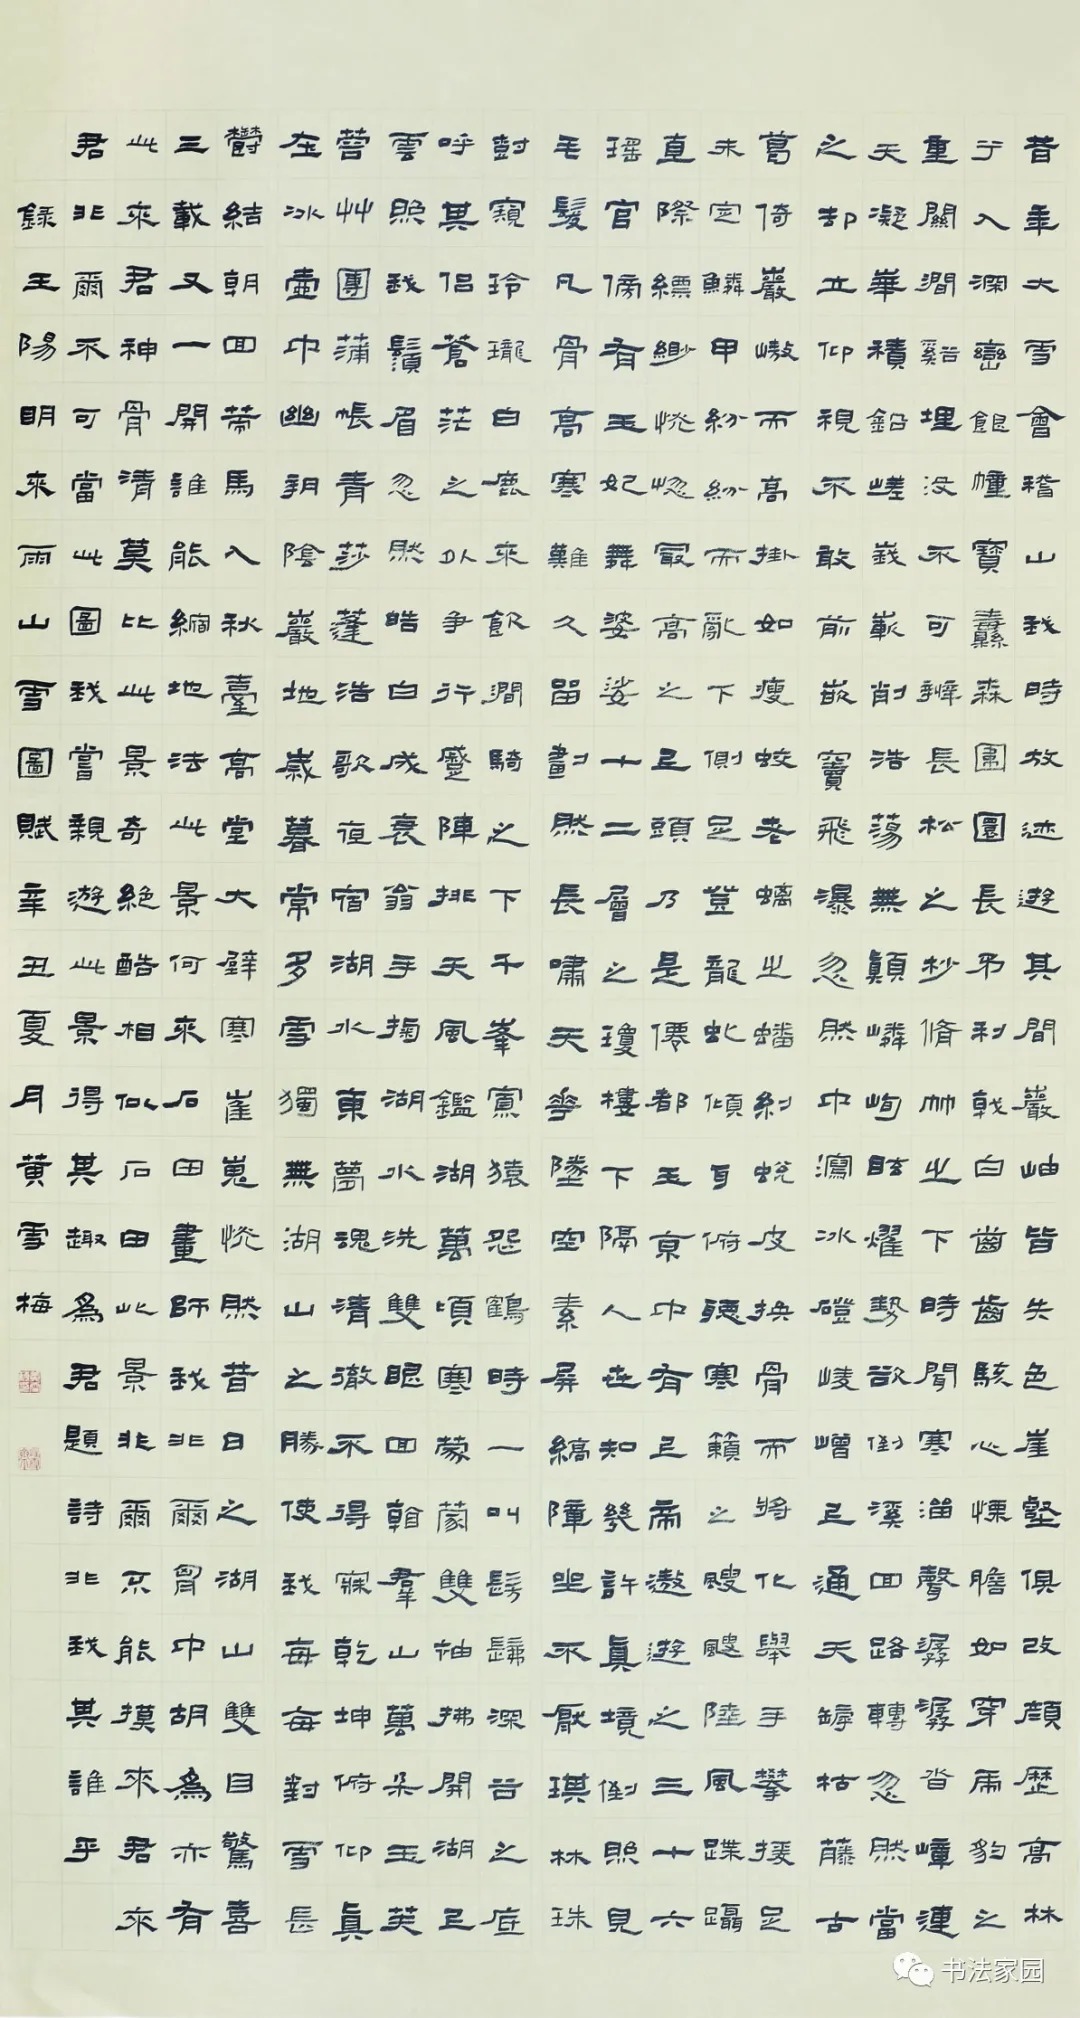 昔年大雪會稽山我時放迹遊其間巖岫皆失色崖壑俱改顏歷高林
兮入深巒銀幢寶纛森圍圓長矛利戟白齒齒駭心慄膽如穿虎豹之
重關澗谿埋沒不可辨長松之杪脩竹之下時聞寒溜聲潺潺沓嶂連
天凝華積鉛嵯峩嶄削浩蕩無顛嶙峋眩燿勢欲倒溪回路轉忽然當
之却立仰視不敢前嵌竇飛瀑忽然中瀉冰磴崚嶒上通天罅枯藤古
葛倚巖嶅而高掛如瘦蛟老螭之蟠糾蛻皮換骨而將化舉手攀援足
未定鱗甲紛紛而亂下側足豈龍虬傾耳俯聽寒籟之颼颼陸風蹀躡
直際縹緲恍惚最高之上頭乃是僊都玉京中有上帝遨遊之三十六
瑤宮傍有玉妃舞婆娑十二層之瓊樓下隔人世知幾許真境倒照見
毛髮凡骨高寒難久留劃然長嘯天花墜空素屏縞障坐不厭琪林珠
樹窺玲瓏白鹿來飲澗騎之下千峯寡猿怨鶴時一叫髣髴深谷之底
呼其侶蒼茫之以爭行蹙陣排天風鑑湖萬頃寒蒙蒙雙袖拂開湖上
雲照我鬚眉忽然皓白成衰翁手掬湖水洗雙眼回看羣山萬朵玉芙
蓉艸團蒲帳青莎蓬浩歌夜宿湖水東夢魂清徹不得寐乾坤俯仰真
在冰壺中幽朔陰巖地歲暮常多雪獨無湖山之勝使我每每對雪長
鬱結朝回策馬入秋臺高堂大壁寒崔嵬恍然昔日之湖山雙目驚喜
三載又一開誰能縮地法此景何來石田畫師我非爾胷中胡為亦有
此來君神骨清莫比此景奇絕酷相似石田此景非爾不能摸來君來
君非爾不可當此圖我嘗親遊此景得其趣為君題詩非我其誰乎
錄王陽明來雨山雪圖賦辛丑夏月黃雪梅
书法家园